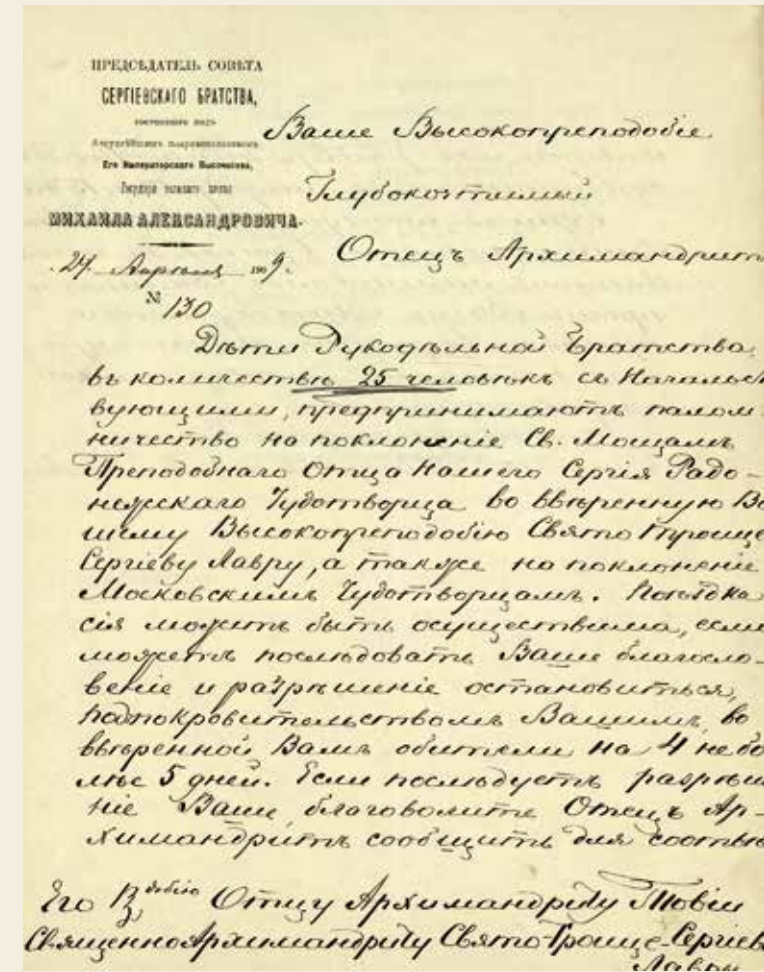 ПРЕДСѢДАТЕЛЬ СОВѢТА
СЕРГІЕВСКАГО БРАТСТВА,
состоящаго подъ
Августѣйшимъ покровительствомъ
Его Императорскаго Высочества,
Государя великаго князя
МИХАИЛА АЛЕКСАНДРОВИЧА.
27 Апрѣля 1909.
№ 130
Ваше Высокопреподобіе
Глубокочтимый
Отецъ Архимандритъ
Дѣти Рукодѣльной Братства,
въ количествѣ 25 человѣкъ съ Начальст
вующими, предпринимаютъ палом
ничество на поклоненіе Св. Мощамъ
Преподобнаго Отца Нашего Сергія Радо-
нежскаго Чудотворца во ввѣренную Ва
шему Высокопреподобію Свято Троице
Сергіеву Лавру, а также на поклоненіе
Московскимъ Чудотворцамъ. Поѣздка
сія можетъ быть осуществима, если
можетъ послѣдовать Ваше благосло-
веніе и разрѣшеніе остановиться,
подпокровительствомъ Вашимъ, во
ввѣренной Вамъ обители на 4 не бо
лѣе 5 дней. Если послѣдуетъ разрѣше
ніе Ваше, благоволите Отецъ Ар-
химандритъ сообщить для
Его Отцу Архимандриту Товіи
СвященноАрхимандриту Свято-Троице-Сергіев
Лавры